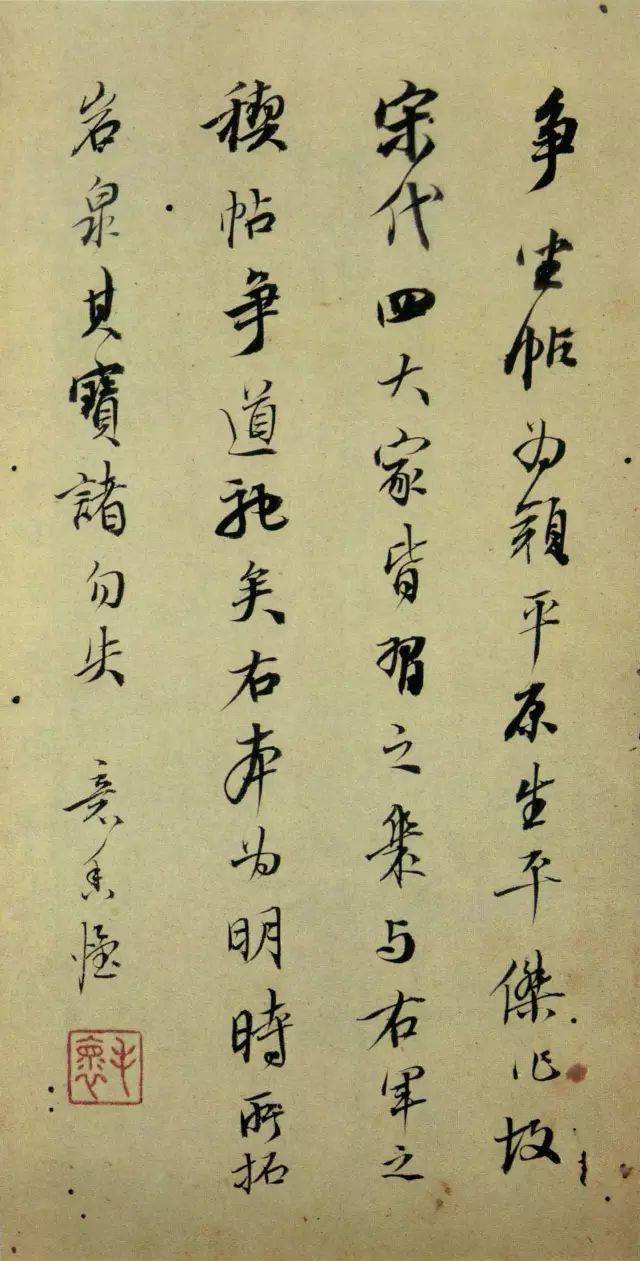 争坐帖为顔平原生平傑作故
宋代四大家皆習之与右軍之
稧帖争道馳矣右本为明時所拓
岩泉其寶諸勿失